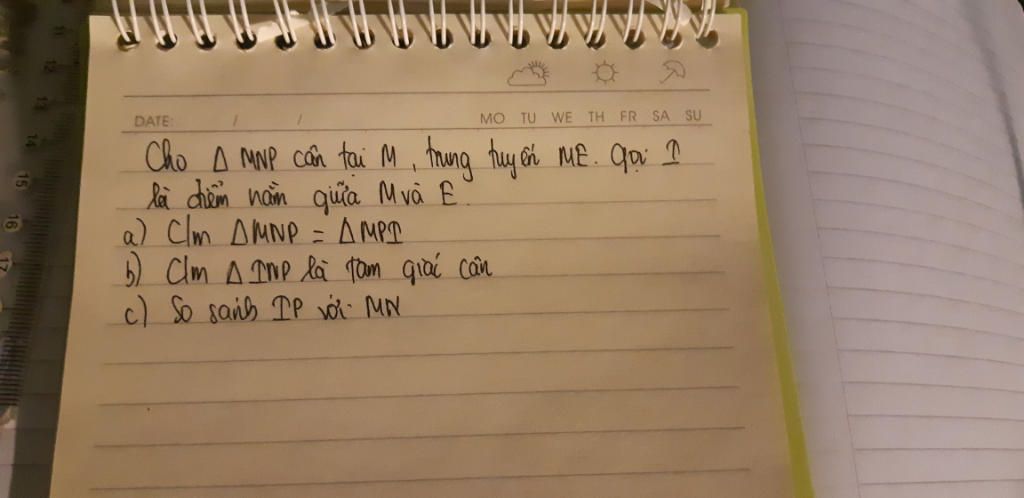 DATE: / / MO TU WE TH FR SA SU
Cho Δ MNP cân tại M, trung tuyến ME. Gọi I
là điểm nằm giữa M và E.
a) C/m ΔMNP = ΔMPI
b) C/m Δ INP là tam giác cân
c) So sánh IP với MN
12
13
14
15
16
17